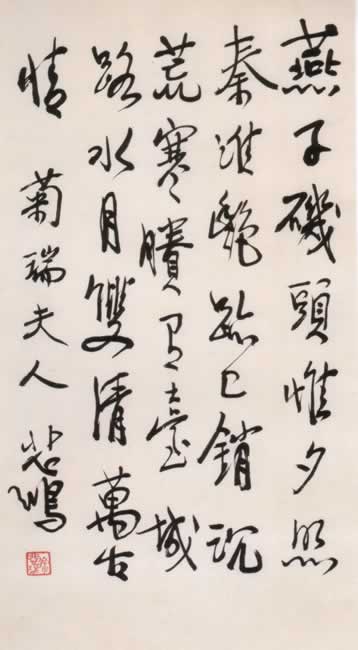 燕子磯頭惟夕照
秦淮艷跡已銷沉
荒寒賸有臺城
路水月雙清萬古
情 菊瑞夫人 悲鴻